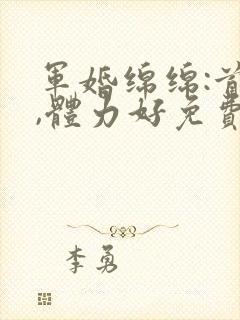 軍婚綿綿:首
,體力好免費
李勇